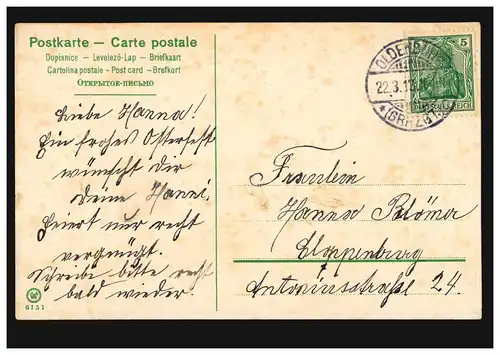 Postkarte — Carte postale
Dopisnice — Levelező-Lap — Briefkaart
Cartolina postale — Post card — Brefkort
Открытое-письмо
Liebe Hanna!
Ein frohes Osterfest
wünscht dir
deine Hanni.
Feiert nur recht
vergnügt.
Schreibe bitte recht
bald wieder.
6151
5
OLDENBURG
22.3.13
*(GRHZGT.)
DEUTSCHES REICH
Fräulein
Hanna Blömer
Cloppenburg
Antoniusstraße 24.